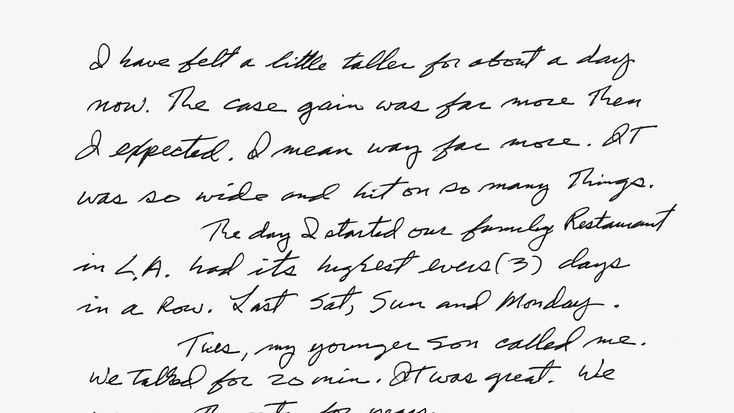 I have felt a little taller for about a day
now. The case gain was far more Then
I expected. I mean way far more. IT
was so wide and hit on so many Things.
The day I started our family Restaurant
in L.A. had its highest evers (3) days
in a Row. Last Sat, Sun and Monday.
Tues, my younger son called me.
We talked for 20 min. IT was great. We
for years.